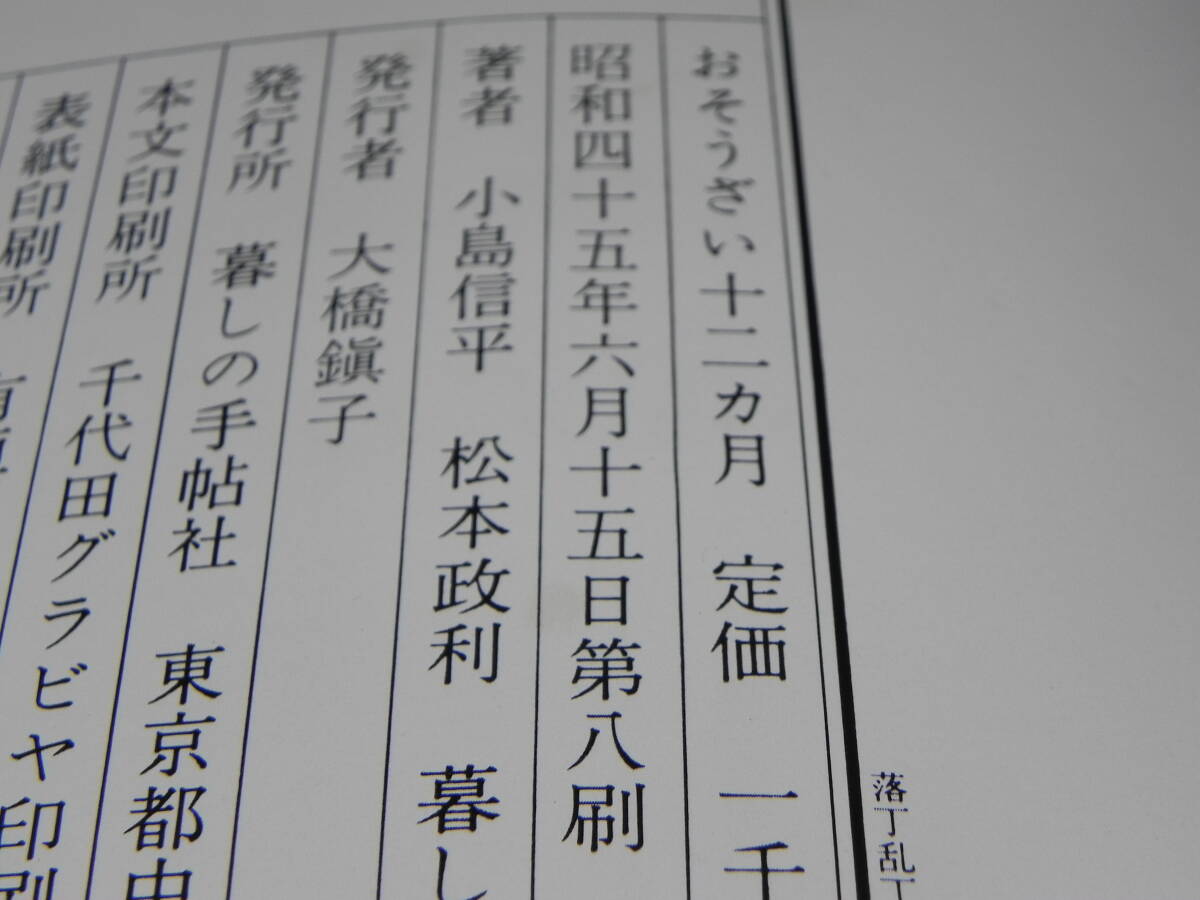 おそうざい十二カ月　定価　一千
昭和四十五年六月十五日第八刷
著者　小島信平　松本政利　暮し
発行者　大橋鎭子
発行所　暮しの手帖社　東京都中
本文印刷所　千代田グラビヤ印刷
表紙印刷所
落丁乱丁